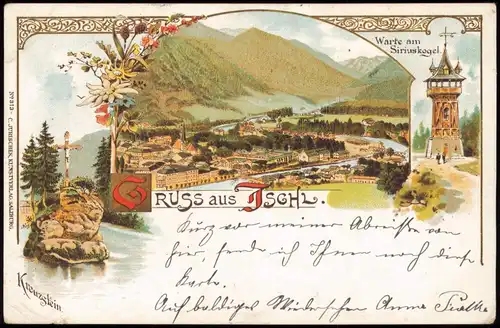 Warte am
Siriuskogel.
No 213 - C. JURISCHEK, KUNSTVERLAG, SALZBURG.
GRUSS AUS ISCHL.
Kreuzstein
Kurz vor meiner Abreise von
hier, sende ich Ihnen noch diese
Karte.
Auf baldiges Wiedersehen Anna